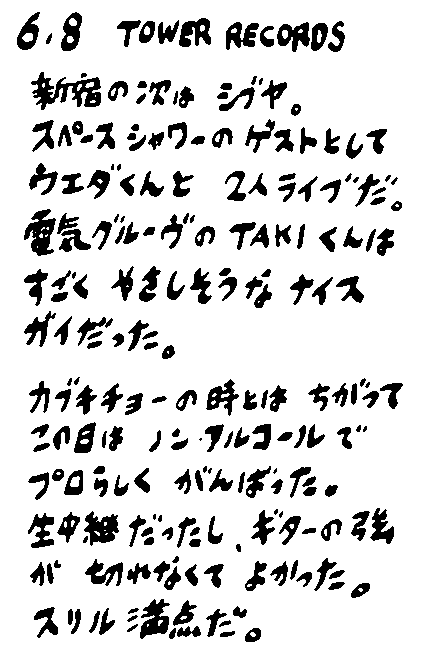 6.8 TOWER RECORDS
新宿の次は シブヤ。
スペースシャワーの ゲストとして
ウエダくんと 2人ライブだ。
電気グルーヴの TAKIくんは
すごく やさしそうな ナイス
ガイだった。
カブキチョーの時とは ちがって
この日は ノン・アルコールで
プロらしく がんばった。
生中継だったし、ギターの弦
が 切れなくて よかった。
スリル満点だ。